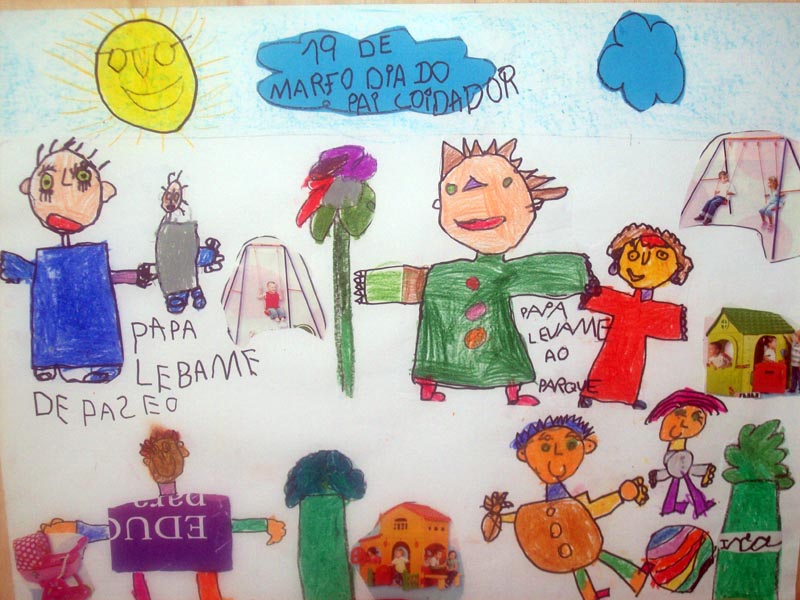 19 DE
MARFO DIA DO
PAI COIDADOR
PAPA
LEBAME
DE PAZEO
PAPA
LEVAME
AO
PARQUE
EDUC
para